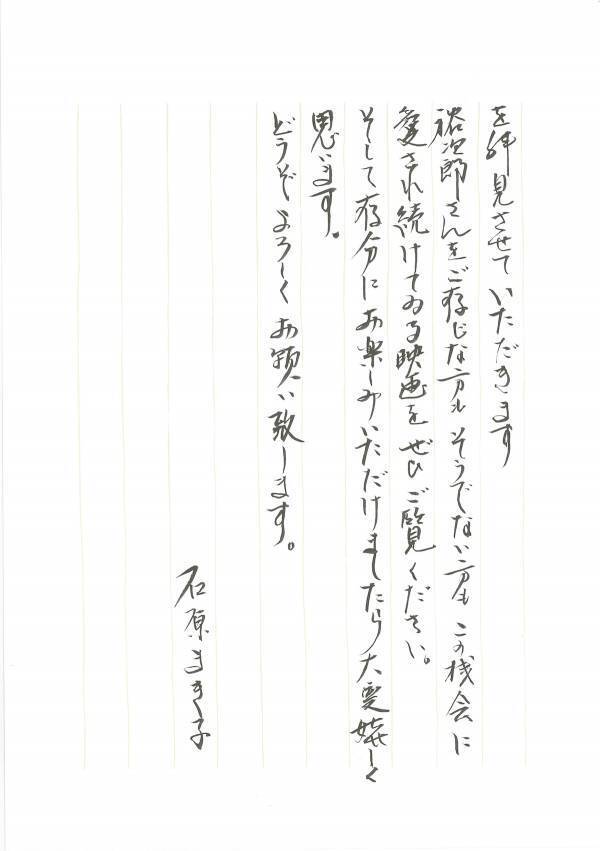 を拝見させていただきます
裕次郎さんをご存じな方も そうでない方も この機会に
愛され続けてゐる映画を ぜひご覧ください。
そして存分に お楽しみいただけましたら 大変嬉しく
思います。
どうぞよろしく お願い致します。
石原まき子